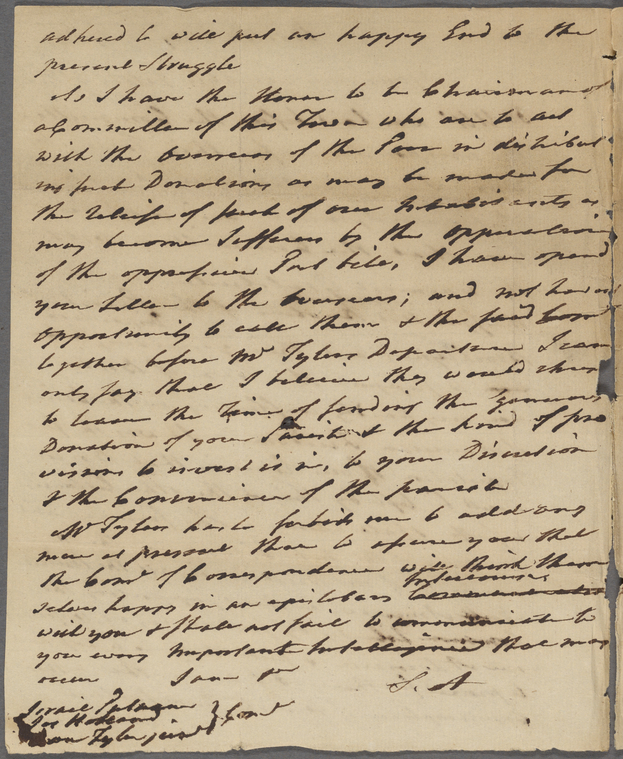 adhered to will put an happy End to the
present Struggle
As I have the Honor to be Chairman of
a Committee of this Town who are to act
with the Overseers of the Poor in distribut
ing such Donations as may be made for
the Reliefe of such of our Inhabitants as
may become Sufferers by the Opperation
of the oppressive Port bill, I have opend
your Letter to the Overseers; and not having
opportunity to call them & the said Comte
together before Mr Tylers Departure I can
only say that I believe they would chuse
to leave the Time of sending the generous
Donation of your Parish & the kind of pro
visions to invest it in, to your Discretion
& the Convenience of the parish
Mr Tylers haste forbids me to add any
more at present than to assure you that
the Come of Correspondence will think them
Intercourse
selves happy in an epistolary
with you & shall not fail to communicate to
you every Important Intelligence that may
occur I am &c
S. A
Israel Putnam
Jos Holland } Come
Dan Tyler junr